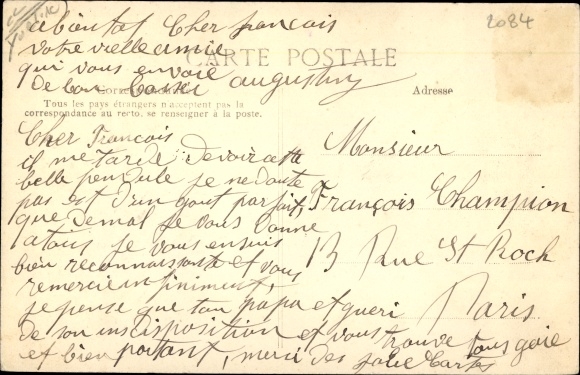 2084
a bientot Cher francois
votre vielle amie
qui vous envoie
de bon baiser augustiny
CARTE POSTALE
Correspondance
Tous les pays étrangers n'acceptent pas la
correspondance au recto, se renseigner à la poste.
Adresse
Cher François
il me tarde de voir cette
belle pendule je ne doute
pas est d'un gout parfait,
que de mal je vous donne
a tous je vous en suis
bien reconnaissante et vous
remercie infiniment,
je pense que ton papa et gueri
de son indisposition et vous trouve tous gaie
et bien portant, merci des jolie Cartes
Monsieur
François Champion
13 Rue St Roch
Paris